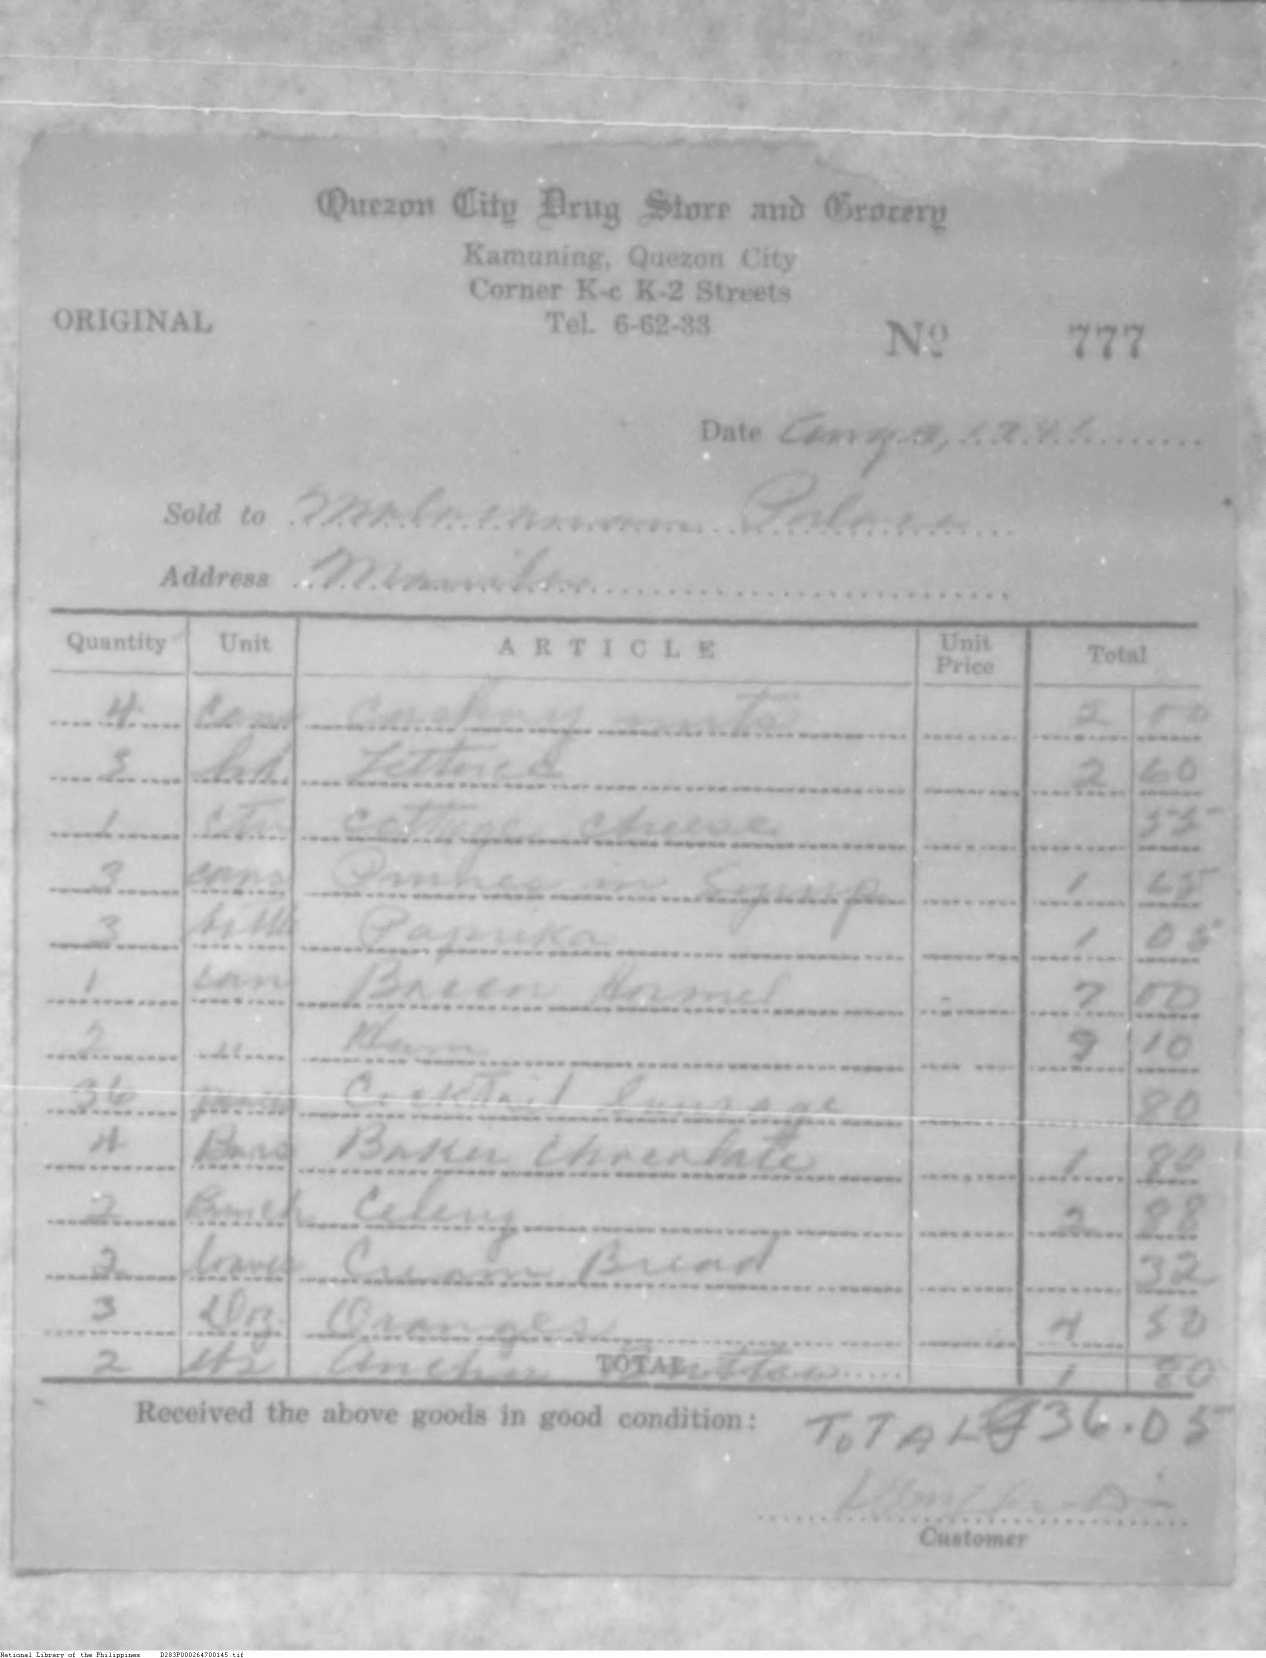 Quezon City Drug Store and Grocery
Kamuning, Quezon City
Corner K-c K-2 Streets
ORIGINAL Tel. 6-62-33
No 777
Date Aug 1941
Sold to Malacanan Palace
Address Manila
Quantity Unit ARTICLE Unit Price Total
4 cans nuts 2 00
3 hd. Lettuce 2 60
1 cottage cheese 55
3 cans Prunes in Syrup 1
3 bttls Paprika 1 05
1 can Bacon Hormel 7 00
2 " Ham 9 10
36 pieces Cocktail Sausage 80
4 Bars Baker Chocolate 1 80
2 Bunch Celery 2 88
2 loaves Cream Bread 32
3 Doz Oranges 4 50
2 lbs Anchor Butter 1 80
TOTAL
Received the above goods in good condition: TOTAL ₱36.05
Customer
National Library of the Philippines D283P000264700145.tif